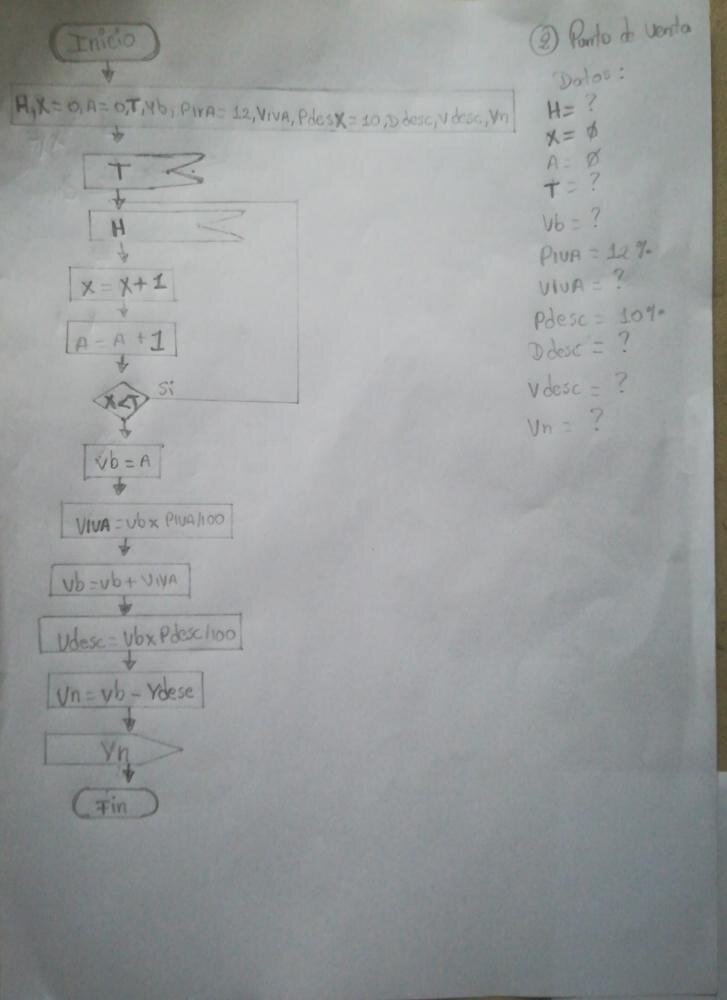 Inicio
H, X = 0, A = 0, T, Vb, PivA = 12, VIVA, PdesX = 10, Ddesc, Vdesc, Vn
T
H
X = X + 1
A = A + 1
X<T
Si
Vb = A
VIVA = Vb x PIVA/100
Vb = Vb + VIVA
Vdesc = Vb x Pdesc/100
Vn = Vb - Vdesc
Vn
Fin
② Punto de Venta
Datos:
H = ?
X = Ø
A = Ø
T = ?
Vb = ?
PIVA = 12%
VIVA = ?
Pdesc = 10%
Ddesc = ?
Vdesc = ?
Vn = ?